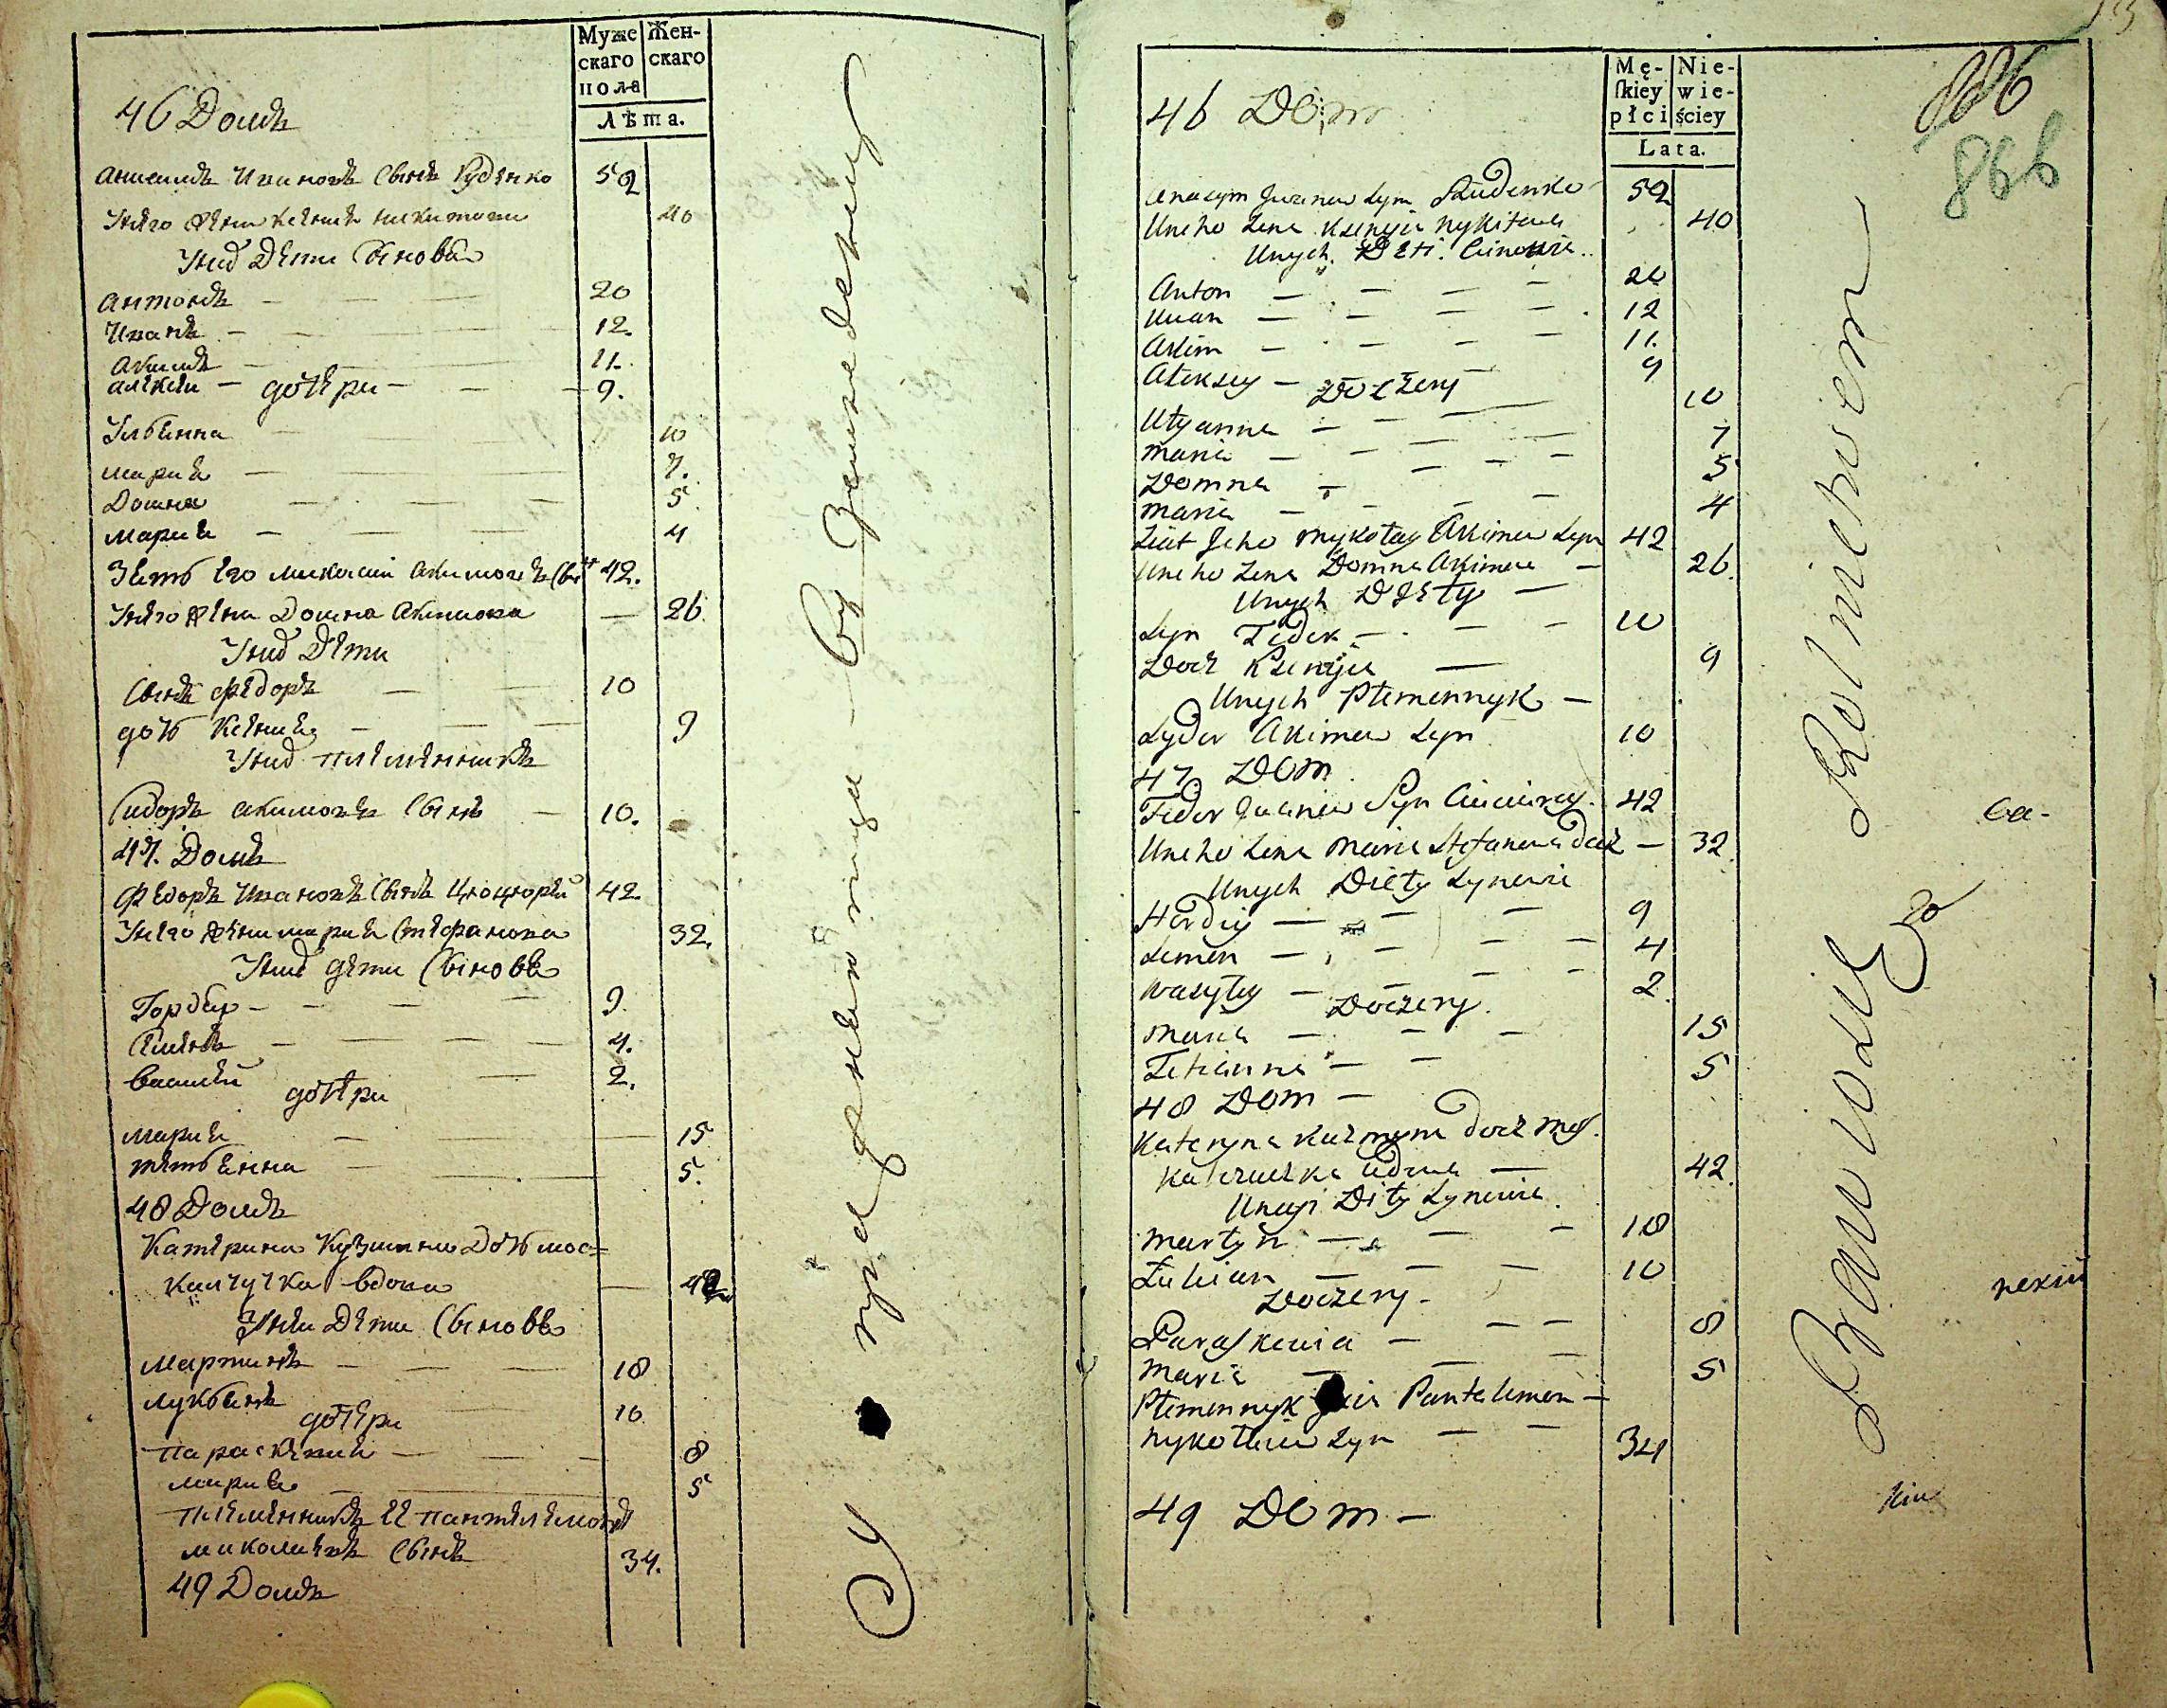 Муже
скаго
пола
Жен-
скаго
Лѣта.
46 Домъ
Анисимъ Ивановъ Сынъ Руденко 52
Унего жена Ксения Никитова 40
Уних Дети Сыновья
Антонъ — — — 20
Иванъ — — — 12.
Акимъ — — — 11.
Алексеи — 9.
дочери
Ульянна — 10
Мария — 7.
Домна — — — 5
Мария — — — 4
Зять его Миколай Акимовъ Сынъ 42.
Унего жена Домна Акимова — 26.
Уних Дети
Сынъ Федоръ — — 10
дочь Ксения — — — 9
Уних племенникъ
Сидоръ Акимовъ Сынъ — 10.
47. Домъ
Федоръ Ивановъ Сынъ Цюцюрей 42.
Унего жена Мария Стефанова 32.
Уних дети Сыновья
Гордей — — — 9.
Семенъ — — — — 4.
Василей — 2.
дочери
Мария — — 15
Тетьянна — — 5.
48 Домъ
Катерина Кузмина Дочь Мос=
калчучка вдова — 42
Унеи Дети Сыновья
Мартинъ — — — 18
Лукьянъ — — 10
дочери
Параскевия — — — 8
Мария — 5
племенникъ ее Пантелемонъ
Миколаевъ Сынъ 34.
49 Домъ
Mę-
skiey
płci
Nie-
wie-
ściey
Lata.
866
46 Dom
Anasym Iwanow Syn Rudenko 52
Uneho Zena Ksenyia Nykitowa 40
Unych Deti Sinowie
Anton — — — — 20
Iwan — — — — 12
Akim — — — — 11.
Aleksey — — — 9
Doczery
Ulyanna — — — 10
Maria — — — — 7
Domna — — — — 5
Maria — — — 4
Ziat Jeho Mykołay Akimow Syn 42
Uneho Zena Domna Akimowa — 26.
Unych Diety —
Syn Fedor — — — 10
Docz Ksenyia — 9
Unych Plemennyk —
Sydor Akimow Syn 10
47 Dom
Fedor Iwanow Syn Ciuciurey 42
Uneho Zena Maria Stefanowa docz — 32
Unych Diety Synowie
Hordiy — — — 9
Semen — — — — 4
Wasyley — — — 2.
Doczery.
Maria — — — 15
Tetianna — — 5
48 Dom —
Kateryna Kuzmyna docz Mos.
kalczuczka wdowa — 42.
Uneyi Dity Synowie.
Martyn — — — 18
Łukian — — — 10
Doczery.
Paraskewia — — — 8
Maria — — — 5
Plemennyk Jeia Pantelemon —
Nykołaiew Syn — — 34
49 Dom —